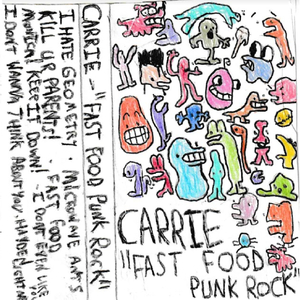 CARRIE
"FAST FOOD
PUNK ROCK
CARRIE - "FAST FOOD PUNK ROCK"
I HATE GEOMETRY MICROWAVE ANTS
KILL UR PARENTS! . FAST FOOD
KEEP IT DOWN! - I DONT EVEN LIKE
I DONT WANNA THINK ABOUT YOU